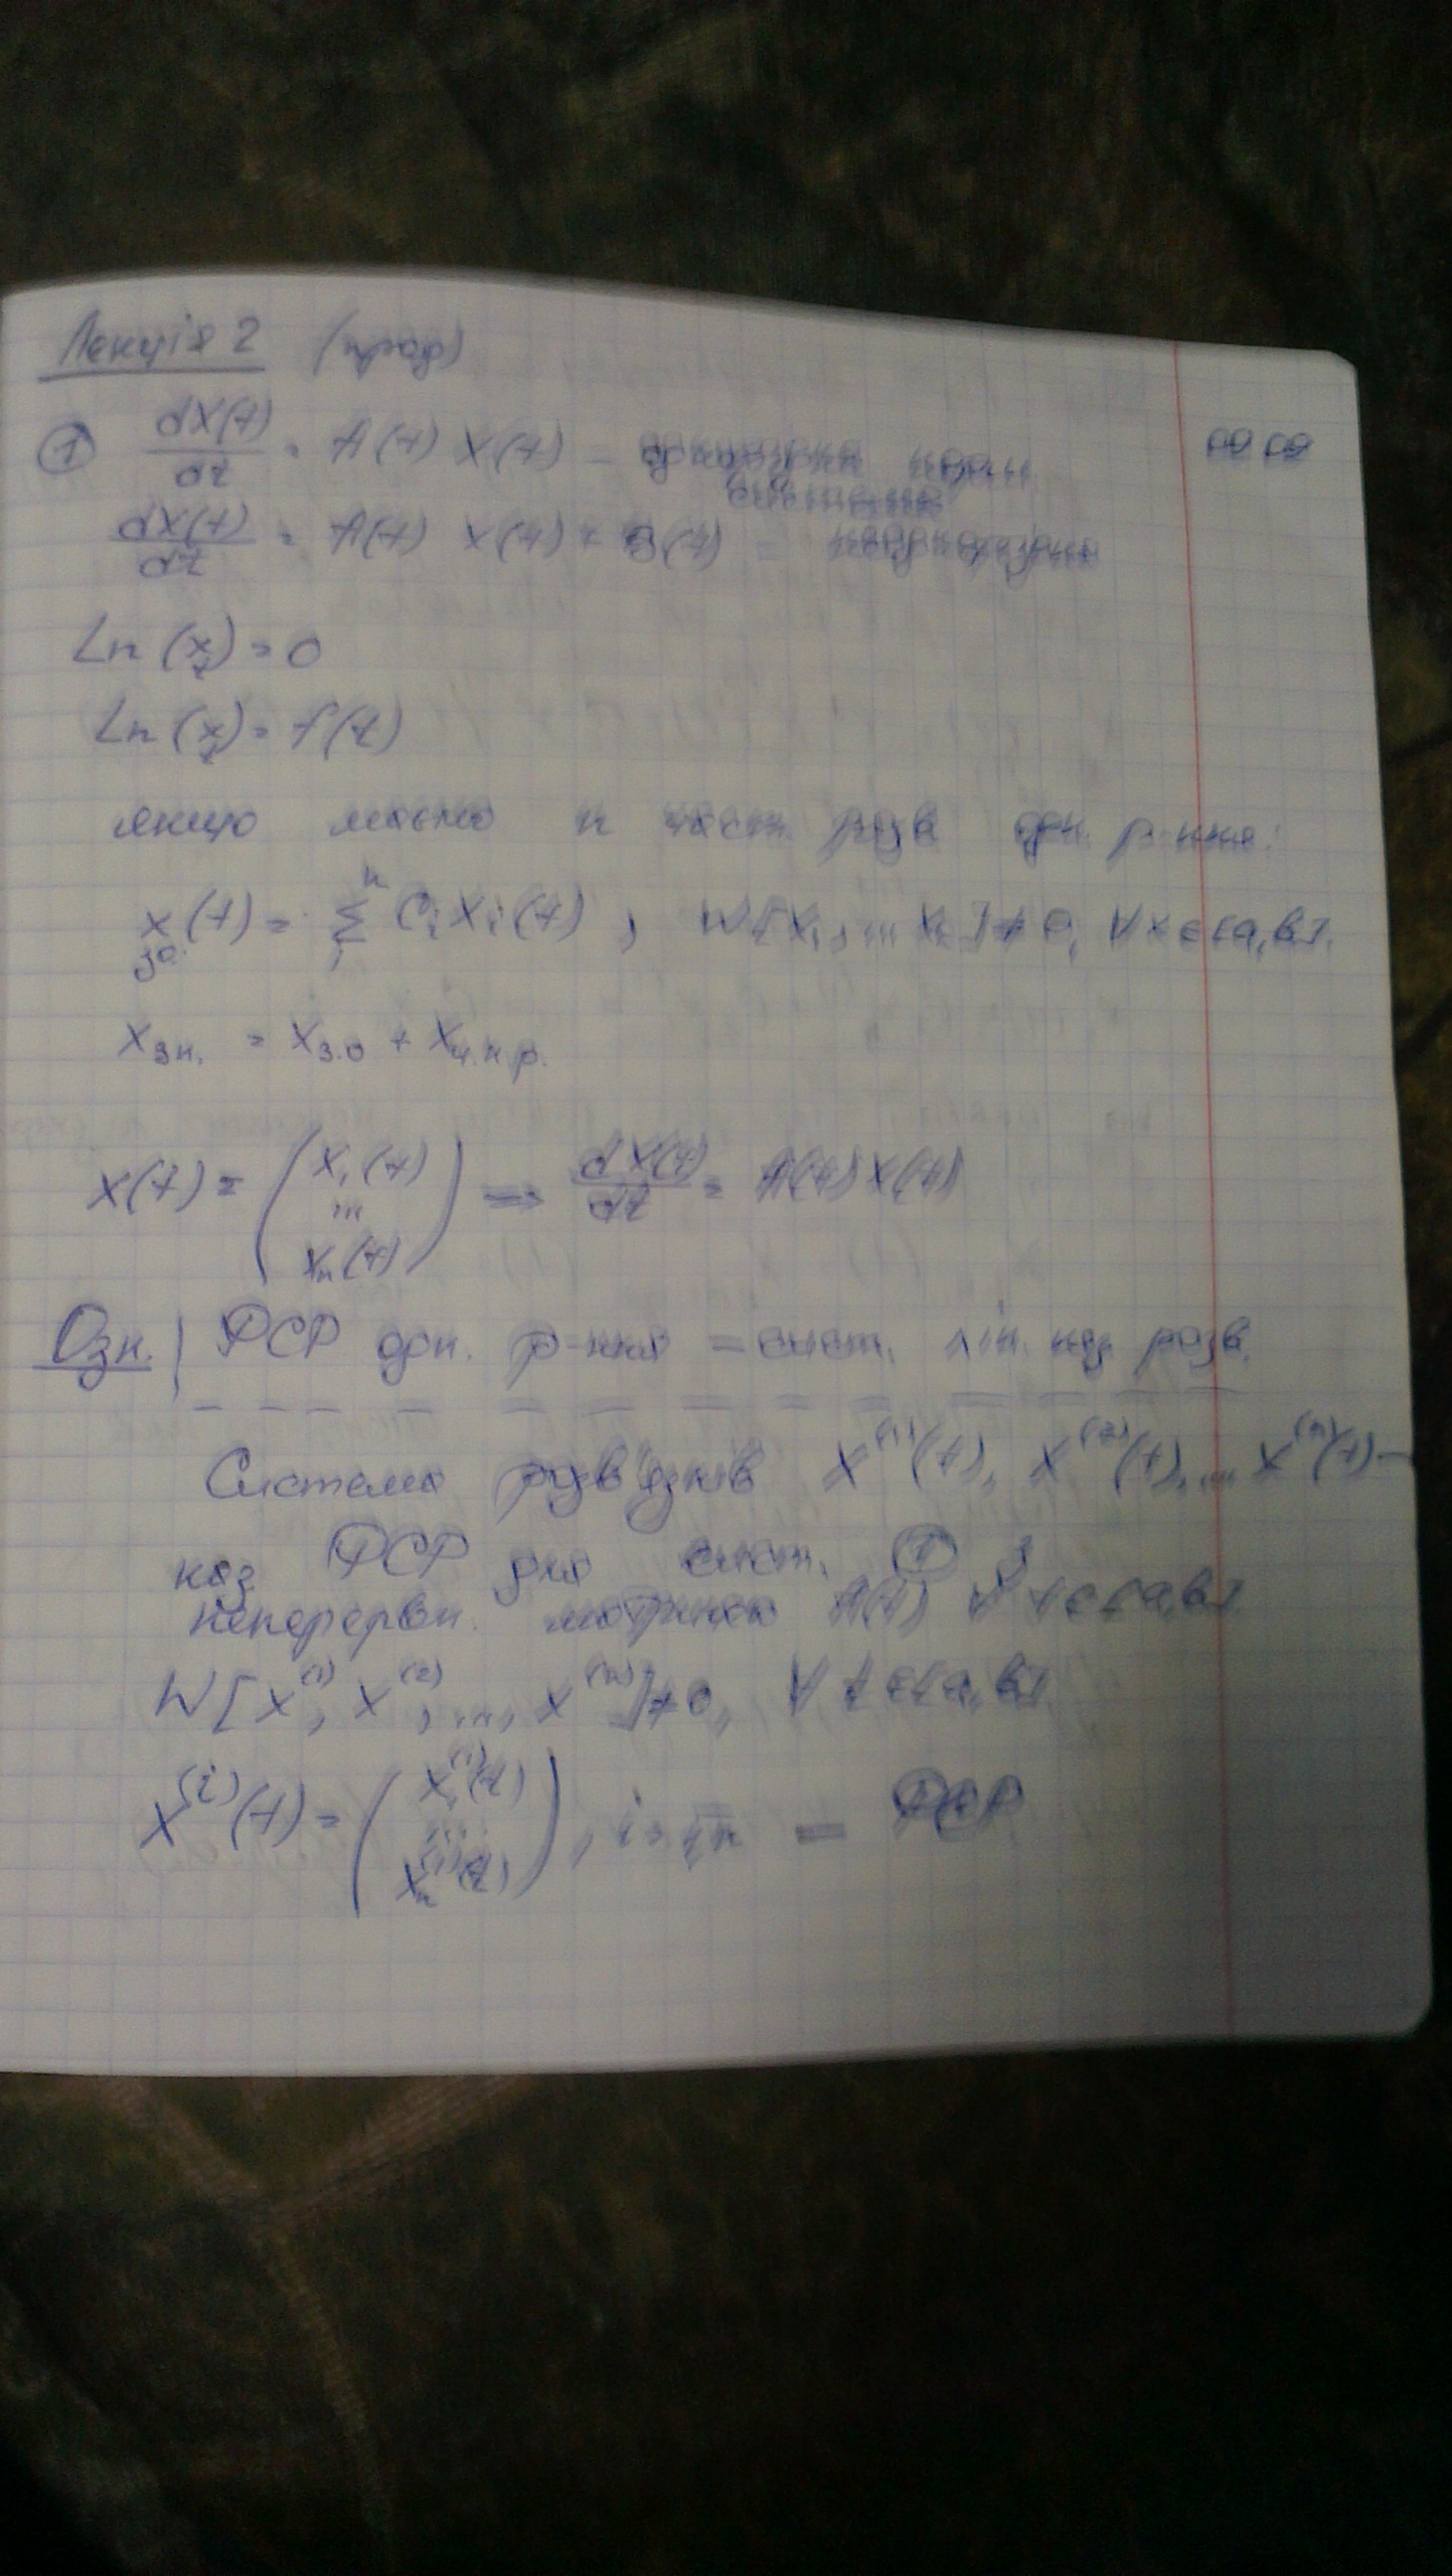 Лекція 2 (прод)
① dX(t)/dt = A(t) X(t) – однорідна
системи
dX(t)/dt = A(t) X(t) + B(t) – неоднорідна
Ln(x) = 0
Ln(x) = f(t)
якщо маємо n част. розв одн. р-ння:
x з.о. (t) = Σ Ci Xi(t), W[X1, ... Xn] ≠ 0, ∀x ∈ [a, b].
X з.н. = X з.о + X ч.н.р.
X(t) = (X1(t) ... Xn(t)) => dX(t)/dt = A(t) X(t)
Озн. | ФСР одн. р-ння = сист. лін. нез розв.
Система розв'язків X⁽¹⁾(t), X⁽²⁾(t), ... X⁽ⁿ⁾(t) –
наз ФСР для сист. ① з
неперервн. матрицею A(t) ∀ t ∈ [a, b].
W[X⁽¹⁾, X⁽²⁾, ..., X⁽ⁿ⁾] ≠ 0, ∀ t ∈ [a, b].
X⁽ⁱ⁾(t) = (X1⁽ⁱ⁾(t) ... Xn⁽ⁱ⁾(t)), i = 1,n – ФСР